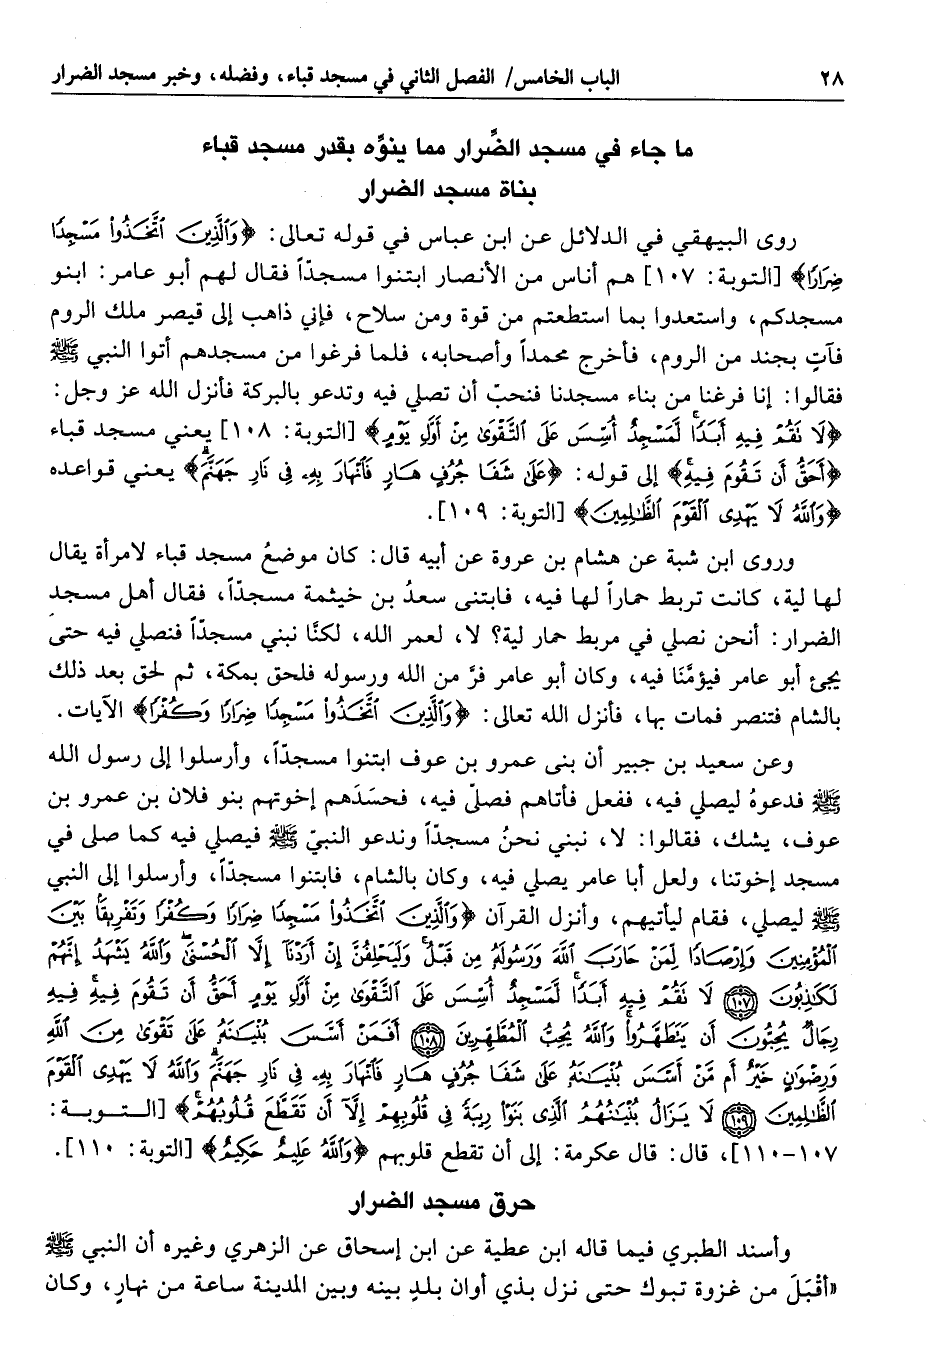 ٢٨ الباب الخامس/ الفصل الثاني في مسجد قباء، وفضله، وخبر مسجد الضرار
ما جاء في مسجد الضِّرار مما ينوِّه بقدر مسجد قباء
بناة مسجد الضرار
روى البيهقي في الدلائل عن ابن عباس في قوله تعالى: ﴿وَٱلَّذِينَ ٱتَّخَذُوا۟ مَسْجِدًا
ضِرَارًا﴾ [التوبة: ١٠٧] هم أناس من الأنصار ابتنوا مسجدّاً فقال لهم أبو عامر: ابنو
مسجدكم، واستعدوا بما استطعتم من قوة ومن سلاح، فإني ذاهب إلى قيصر ملك الروم
فآتٍ بجند من الروم، فأخرج محمداً وأصحابه، فلما فرغوا من مسجدهم أتوا النبي ﷺ
فقالوا: إنا فرغنا من بناء مسجدنا فنحبّ أن تصلي فيه وتدعو بالبركة فأنزل الله عز وجل:
﴿لَا نَقُمْ فِيهِ أَبَدًا ۚ لَّمَسْجِدٌ أُسِّسَ عَلَى ٱلتَّقْوَىٰ مِنْ أَوَّلِ يَوْمٍ﴾ [التوبة: ١٠٨] يعني مسجد قباء
﴿أَحَقُّ أَن تَقُومَ فِيهِ ۚ﴾ إلى قوله: ﴿عَلَىٰ شَفَا جُرُفٍ هَارٍ فَٱنْهَارَ بِهِۦ فِى نَارِ جَهَنَّمَ ۗ﴾ يعني قواعده
﴿وَٱللَّهُ لَا يَهْدِى ٱلْقَوْمَ ٱلظَّـٰلِمِينَ﴾ [التوبة: ١٠٩].
وروى ابن شبة عن هشام بن عروة عن أبيه قال: كان موضعُ مسجد قباء لامرأة يقال
لها لية، كانت تربط حماراً لها فيه، فابتنى سعدُ بن خيثمة مسجدّاً، فقال أهل مسجد
الضرار: أنحن نصلي في مربط حمار لية؟ لا، لعمر الله، لكنَّا نبني مسجدّاً فنصلي فيه حتى
يجئ أبو عامر فيؤمَّنَا فيه، وكان أبو عامر فرَّ من الله ورسوله فلحق بمكة، ثم لحق بعد ذلك
بالشام فتنصر فمات بها، فأنزل الله تعالى: ﴿وَٱلَّذِينَ ٱتَّخَذُوا۟ مَسْجِدًا ضِرَارًا وَكُفْرًا﴾ الآيات.
وعن سعيد بن جبير أن بنى عمرو بن عوف ابتنوا مسجدّاً، وأرسلوا إلى رسول الله
ﷺ فدعوهُ ليصلي فيه، ففعل فأتاهم فصلّي فيه، فحسَدَهم إخوتهم بنو فلان بن عمرو بن
عوف، يشك، فقالوا: لا، نبني نحنُ مسجدّاً وندعو النبيّ ﷺ فيصلي فيه كما صلى في
مسجد إخوتنا، ولعل أبا عامر يصلي فيه، وكان بالشام، فابتنوا مسجدّاً، وأرسلوا إلى النبي
ﷺ ليصلي، فقام ليأتيهم، وأنزل القرآن ﴿وَٱلَّذِينَ ٱتَّخَذُوا۟ مَسْجِدًا ضِرَارًا وَكُفْرًا وَتَفْرِيقًۢا بَيْنَ
ٱلْمُؤْمِنِينَ وَإِرْصَادًا لِّمَنْ حَارَبَ ٱللَّهَ وَرَسُولَهُۥ مِن قَبْلُ ۚ وَلَيَحْلِفُنَّ إِنْ أَرَدْنَآ إِلَّا ٱلْحُسْنَىٰ ۖ وَٱللَّهُ يَشْهَدُ إِنَّهُمْ
لَكَـٰذِبُونَ ﴿١٠٧﴾ لَا نَقُمْ فِيهِ أَبَدًا ۚ لَّمَسْجِدٌ أُسِّسَ عَلَى ٱلتَّقْوَىٰ مِنْ أَوَّلِ يَوْمٍ أَحَقُّ أَن تَقُومَ فِيهِ ۚ فِيهِ
رِجَالٌ يُحِبُّونَ أَن يَتَطَهَّرُوا۟ ۚ وَٱللَّهُ يُحِبُّ ٱلْمُطَّهِّرِينَ ﴿١٠٨﴾ أَفَمَنْ أَسَّسَ بُنْيَـٰنَهُۥ عَلَىٰ تَقْوَىٰ مِنَ ٱللَّهِ
وَرِضْوَٰنٍ خَيْرٌ أَم مَّنْ أَسَّسَ بُنْيَـٰنَهُۥ عَلَىٰ شَفَا جُرُفٍ هَارٍ فَٱنْهَارَ بِهِۦ فِى نَارِ جَهَنَّمَ ۗ وَٱللَّهُ لَا يَهْدِى ٱلْقَوْمَ
ٱلظَّـٰلِمِينَ ﴿١٠٩﴾ لَا يَزَالُ بُنْيَـٰنُهُمُ ٱلَّذِى بَنَوْا۟ رِيبَةً فِى قُلُوبِهِمْ إِلَّآ أَن تَقَطَّعَ قُلُوبُهُمْ ۗ﴾ [الـتـوبـة:
١٠٧-١١٠]، قال: قال عكرمة: إلى أن تقطع قلوبهم ﴿وَٱللَّهُ عَلِيمٌ حَكِيمٌ﴾ [التوبة: ١١٠].
حرق مسجد الضرار
وأسند الطبري فيما قاله ابن عطية عن ابن إسحاق عن الزهري وغيره أن النبي ﷺ
«أقْبَلَ من غزوة تبوك حتى نزل بذي أوان بلدٍ بينه وبين المدينة ساعة من نهارٍ، وكان